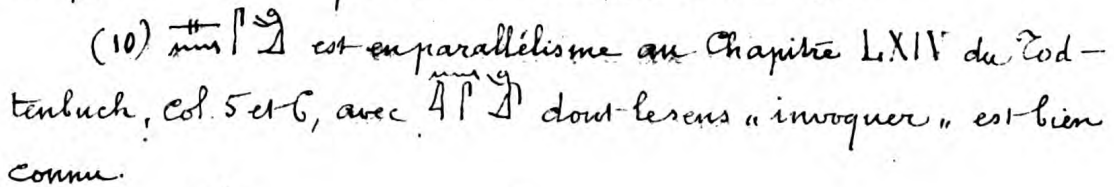 (10) 𓊃𓈖𓋴𓀁 est en parallélisme au Chapitre LXIV du Tod-
tenbuch, col. 5 et 6, avec dont le sens „ invoquer „ est bien
connu.